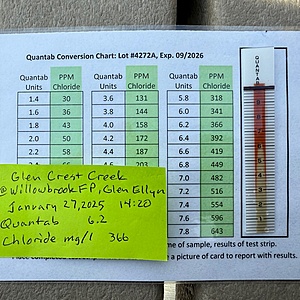 Quantab Conversion Chart: Lot #4272A, Exp. 09/2026
Quantab Units PPM Chloride Quantab Units PPM Chloride Quantab Units PPM Chloride
1.4 30 3.6 131 5.8 318
1.6 36 3.8 144 6.0 341
1.8 43 4.0 158 6.2 366
2.0 50 4.2 172 6.4 392
2.2 58 4.4 187 6.6 419
4.6 203 6.8 449
7.0 482
7.2 516
7.4
7.6
7.8 643
QUANTAB
Glen Crest Creek
@ Willowbrook FP, Glen Ellyn
January 27, 2025 14:20
Quantab 6.2
Chloride mg/l 366
me of sample, results of test strip.
e a picture of card to report with results.